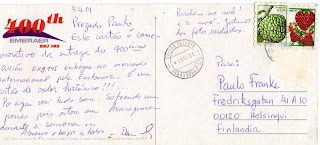 400th
EMBRAER
ERJ 145
9.4.01
Prezado Paulo
Este cartão é come-
morativo da entrega do 400
avião ERJ 145 entregue ao mercado
internacional pela Embraer. É um
cartão de valor histórico!!!
Por aqui vai tudo bem. Sofrendo um
pouco pois estou em Araraquara
durante a semana
Abraços e beijos a todos
Parabéns ao avô!
e à avó
das fotos
Para:
Paulo Franke
Fredriksgatan 71 A 10
00120 Helsinqui
Finlandia